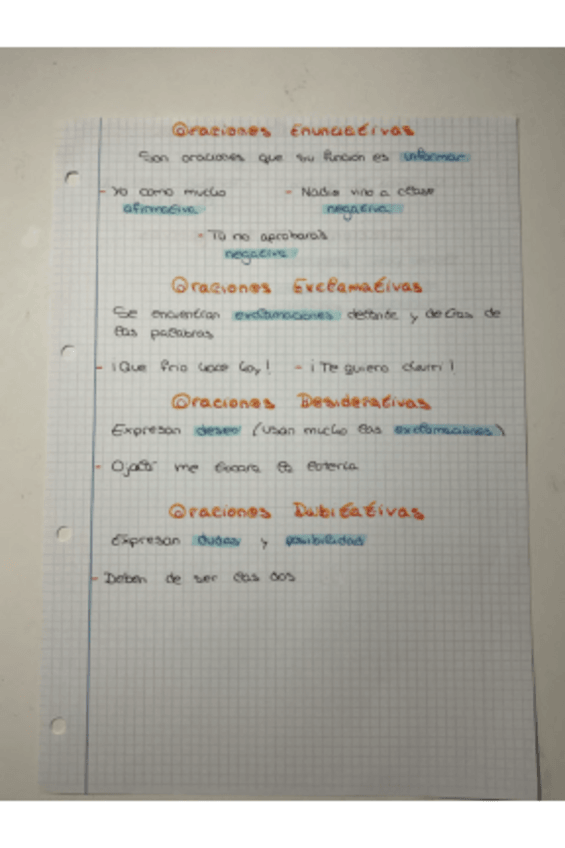 Oraciones Enunciativas
Son oraciones que su función es informar
- Yo como mucho - Nadie vino a clase
afirmativa negativa
- Tú no aprobarás
negativa
Oraciones Exclamativas
Se encuentran exclamaciones delante y detrás de
las palabras
- ¡Que frio hace hoy! - ¡Te quiero
Oraciones Desiderativas
Expresan deseo (usan mucho las exclamaciones)
- Ojalá me tocara la lotería
Oraciones Dubitativas
Expresan dudas y posibilidad
- Deben de ser las dos